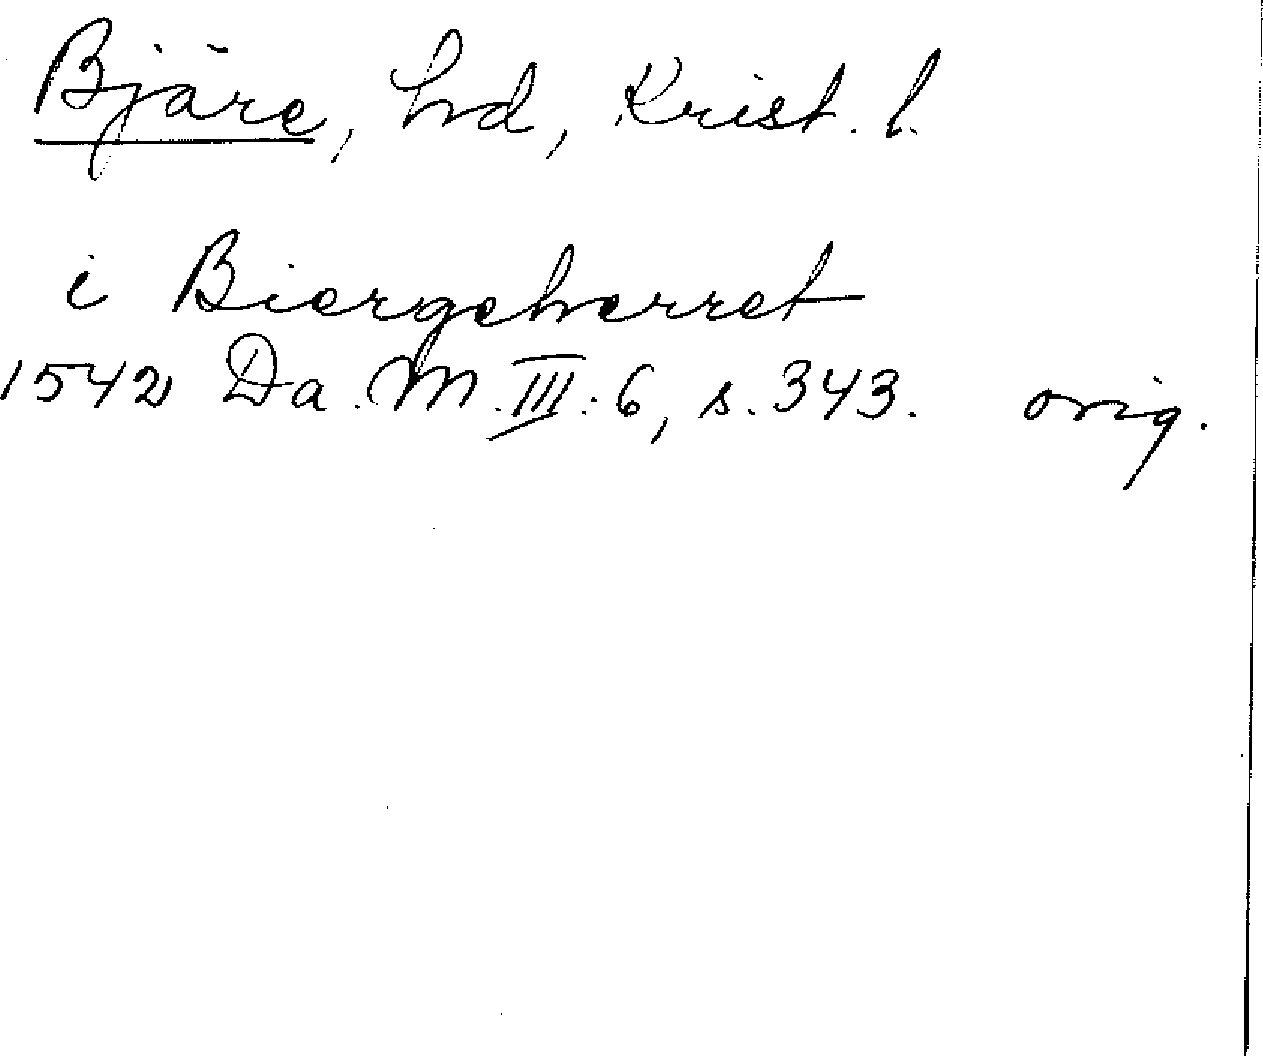 Bjäre, hd, Krist. l.
i Biergeherret
1542 Da. M. III: 6, s. 343. orig.